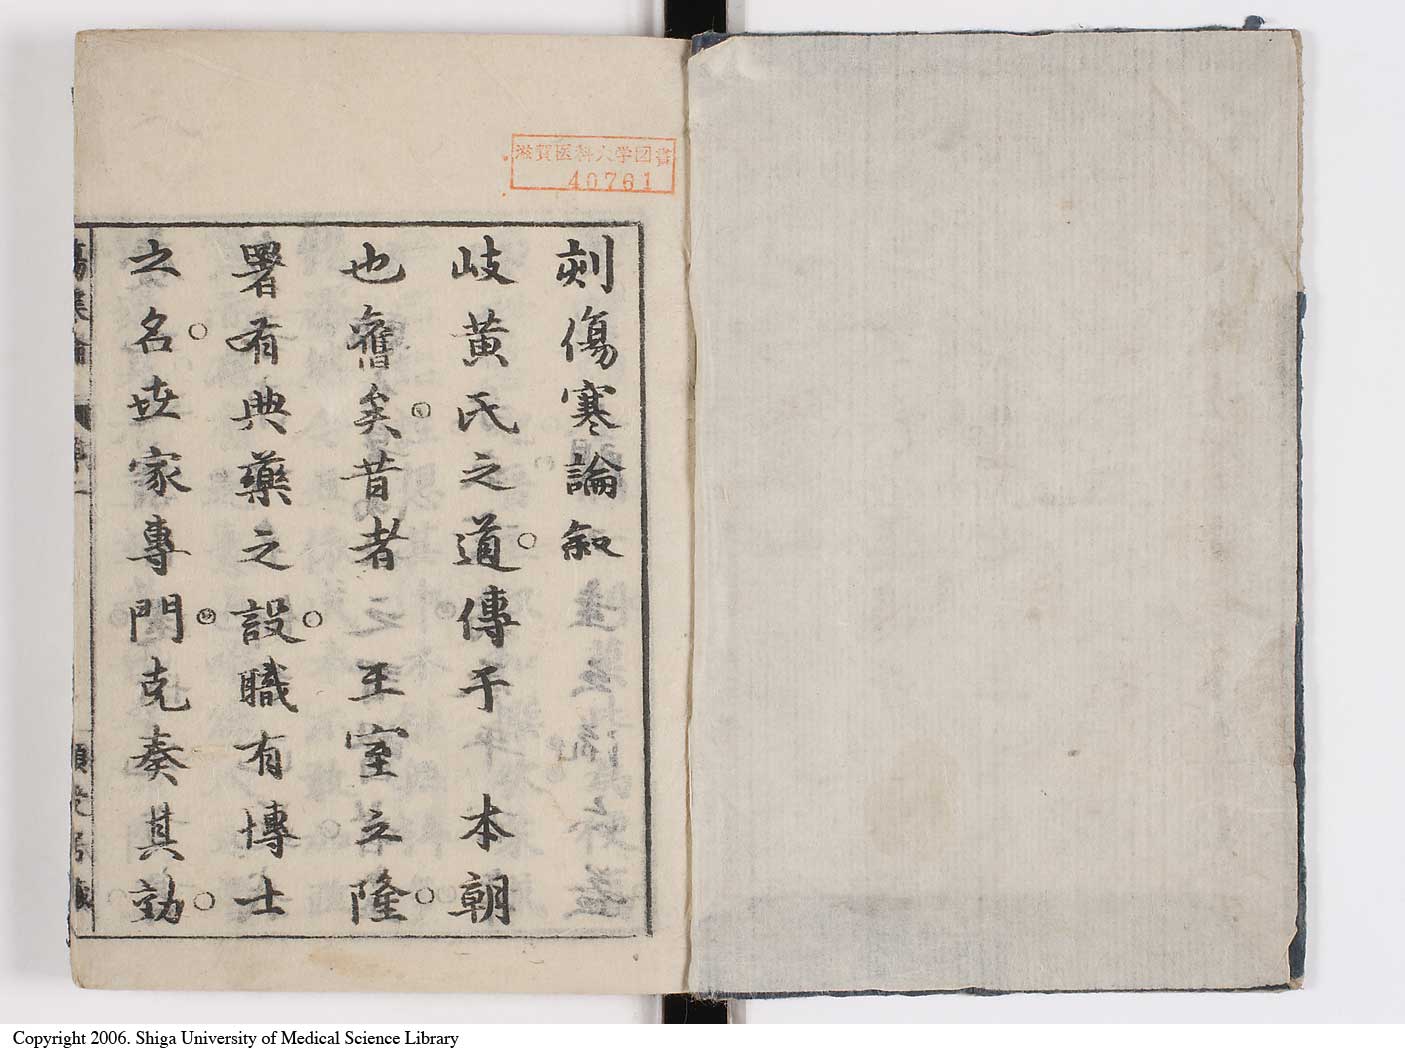 滋賀医科大学図書
40761
刻傷寒論叙
岐黄氏之道傳于 本朝
也舊矣昔者之王室之隆
署有典藥之設職有博士
之名世家專門克奏其効
Copyright 2006. Shiga University of Medical Science Library